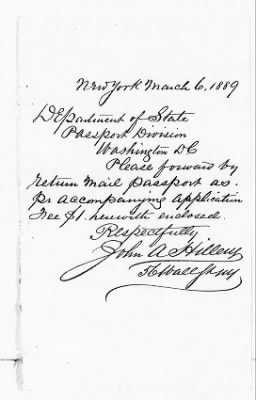 New York March 6. 1889
Department of State
Passport Division
Washington DC
Please forward by
return mail passport as.
pr accompanying application
Fee $1. herewith enclosed.
Respectfully
John A Hillery
Wall St NY